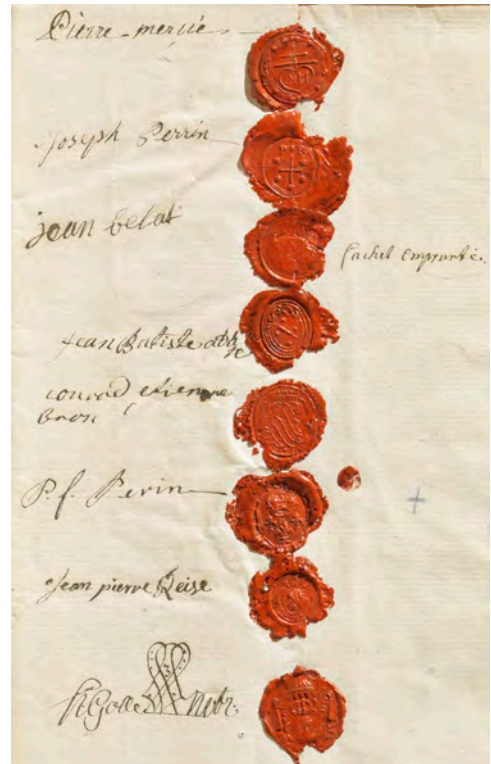 Pierre mercié
Joseph Perrin
jean belat
Cachet emprunté.
Jean Batiste
conrad etienne
P. f. Perin
Jean pierre Reise
notr.